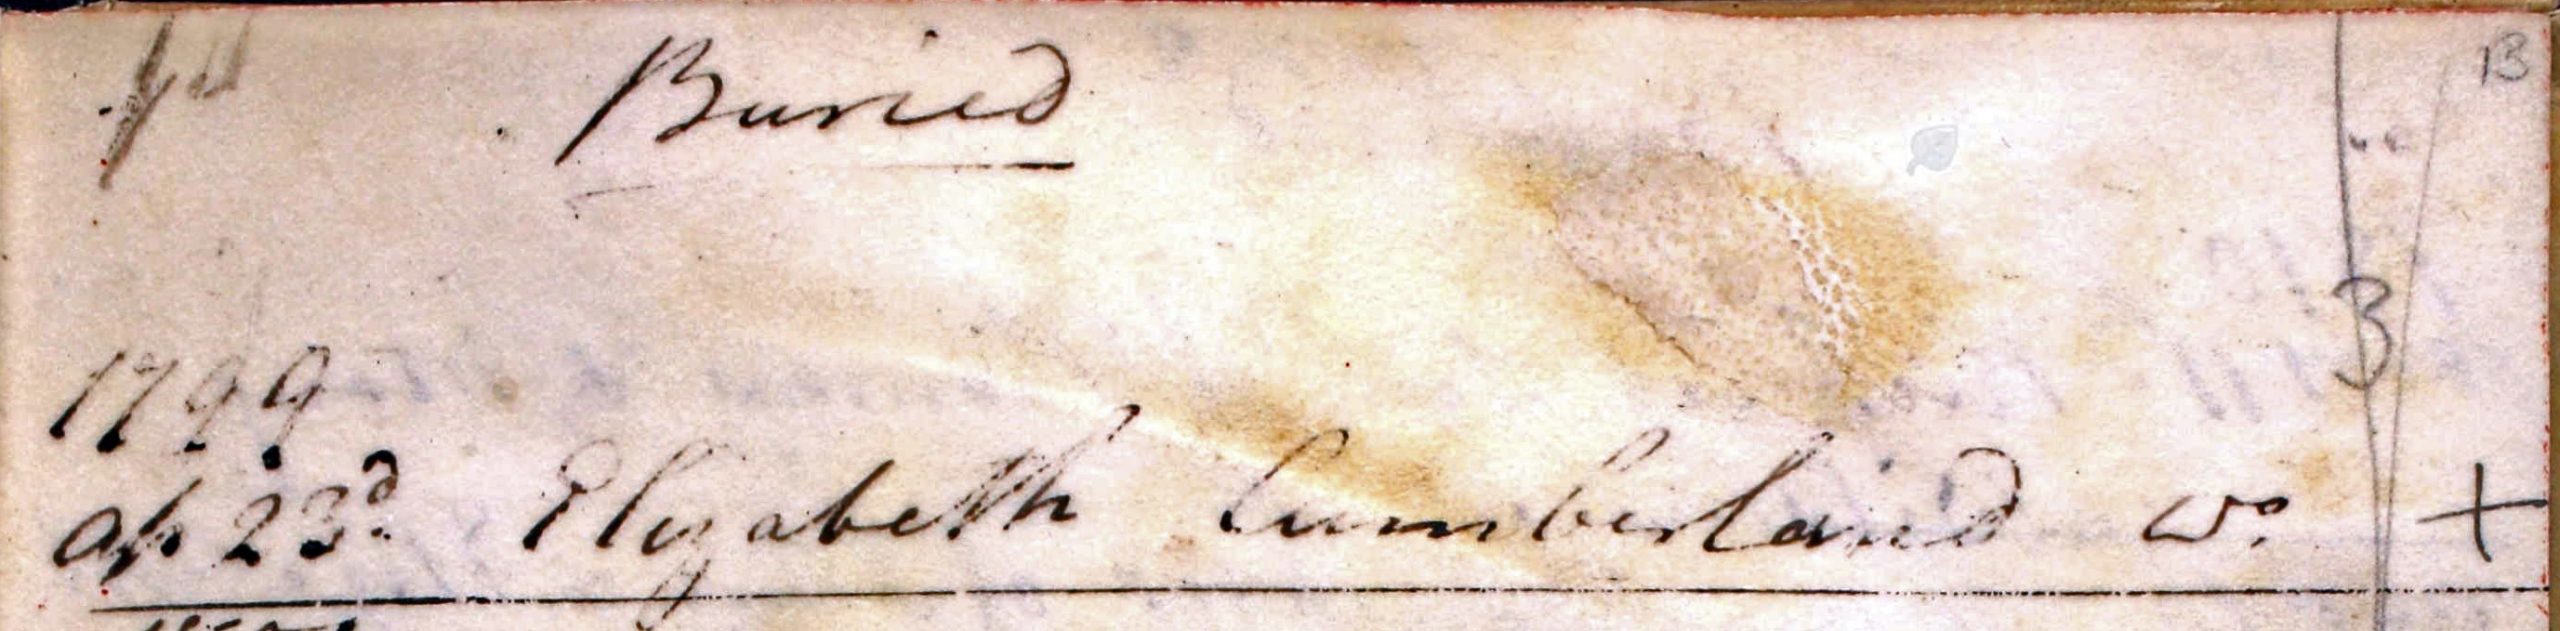 13
Buried
3
1799
Ap 23d. Elizabeth Cumberland Wo. +